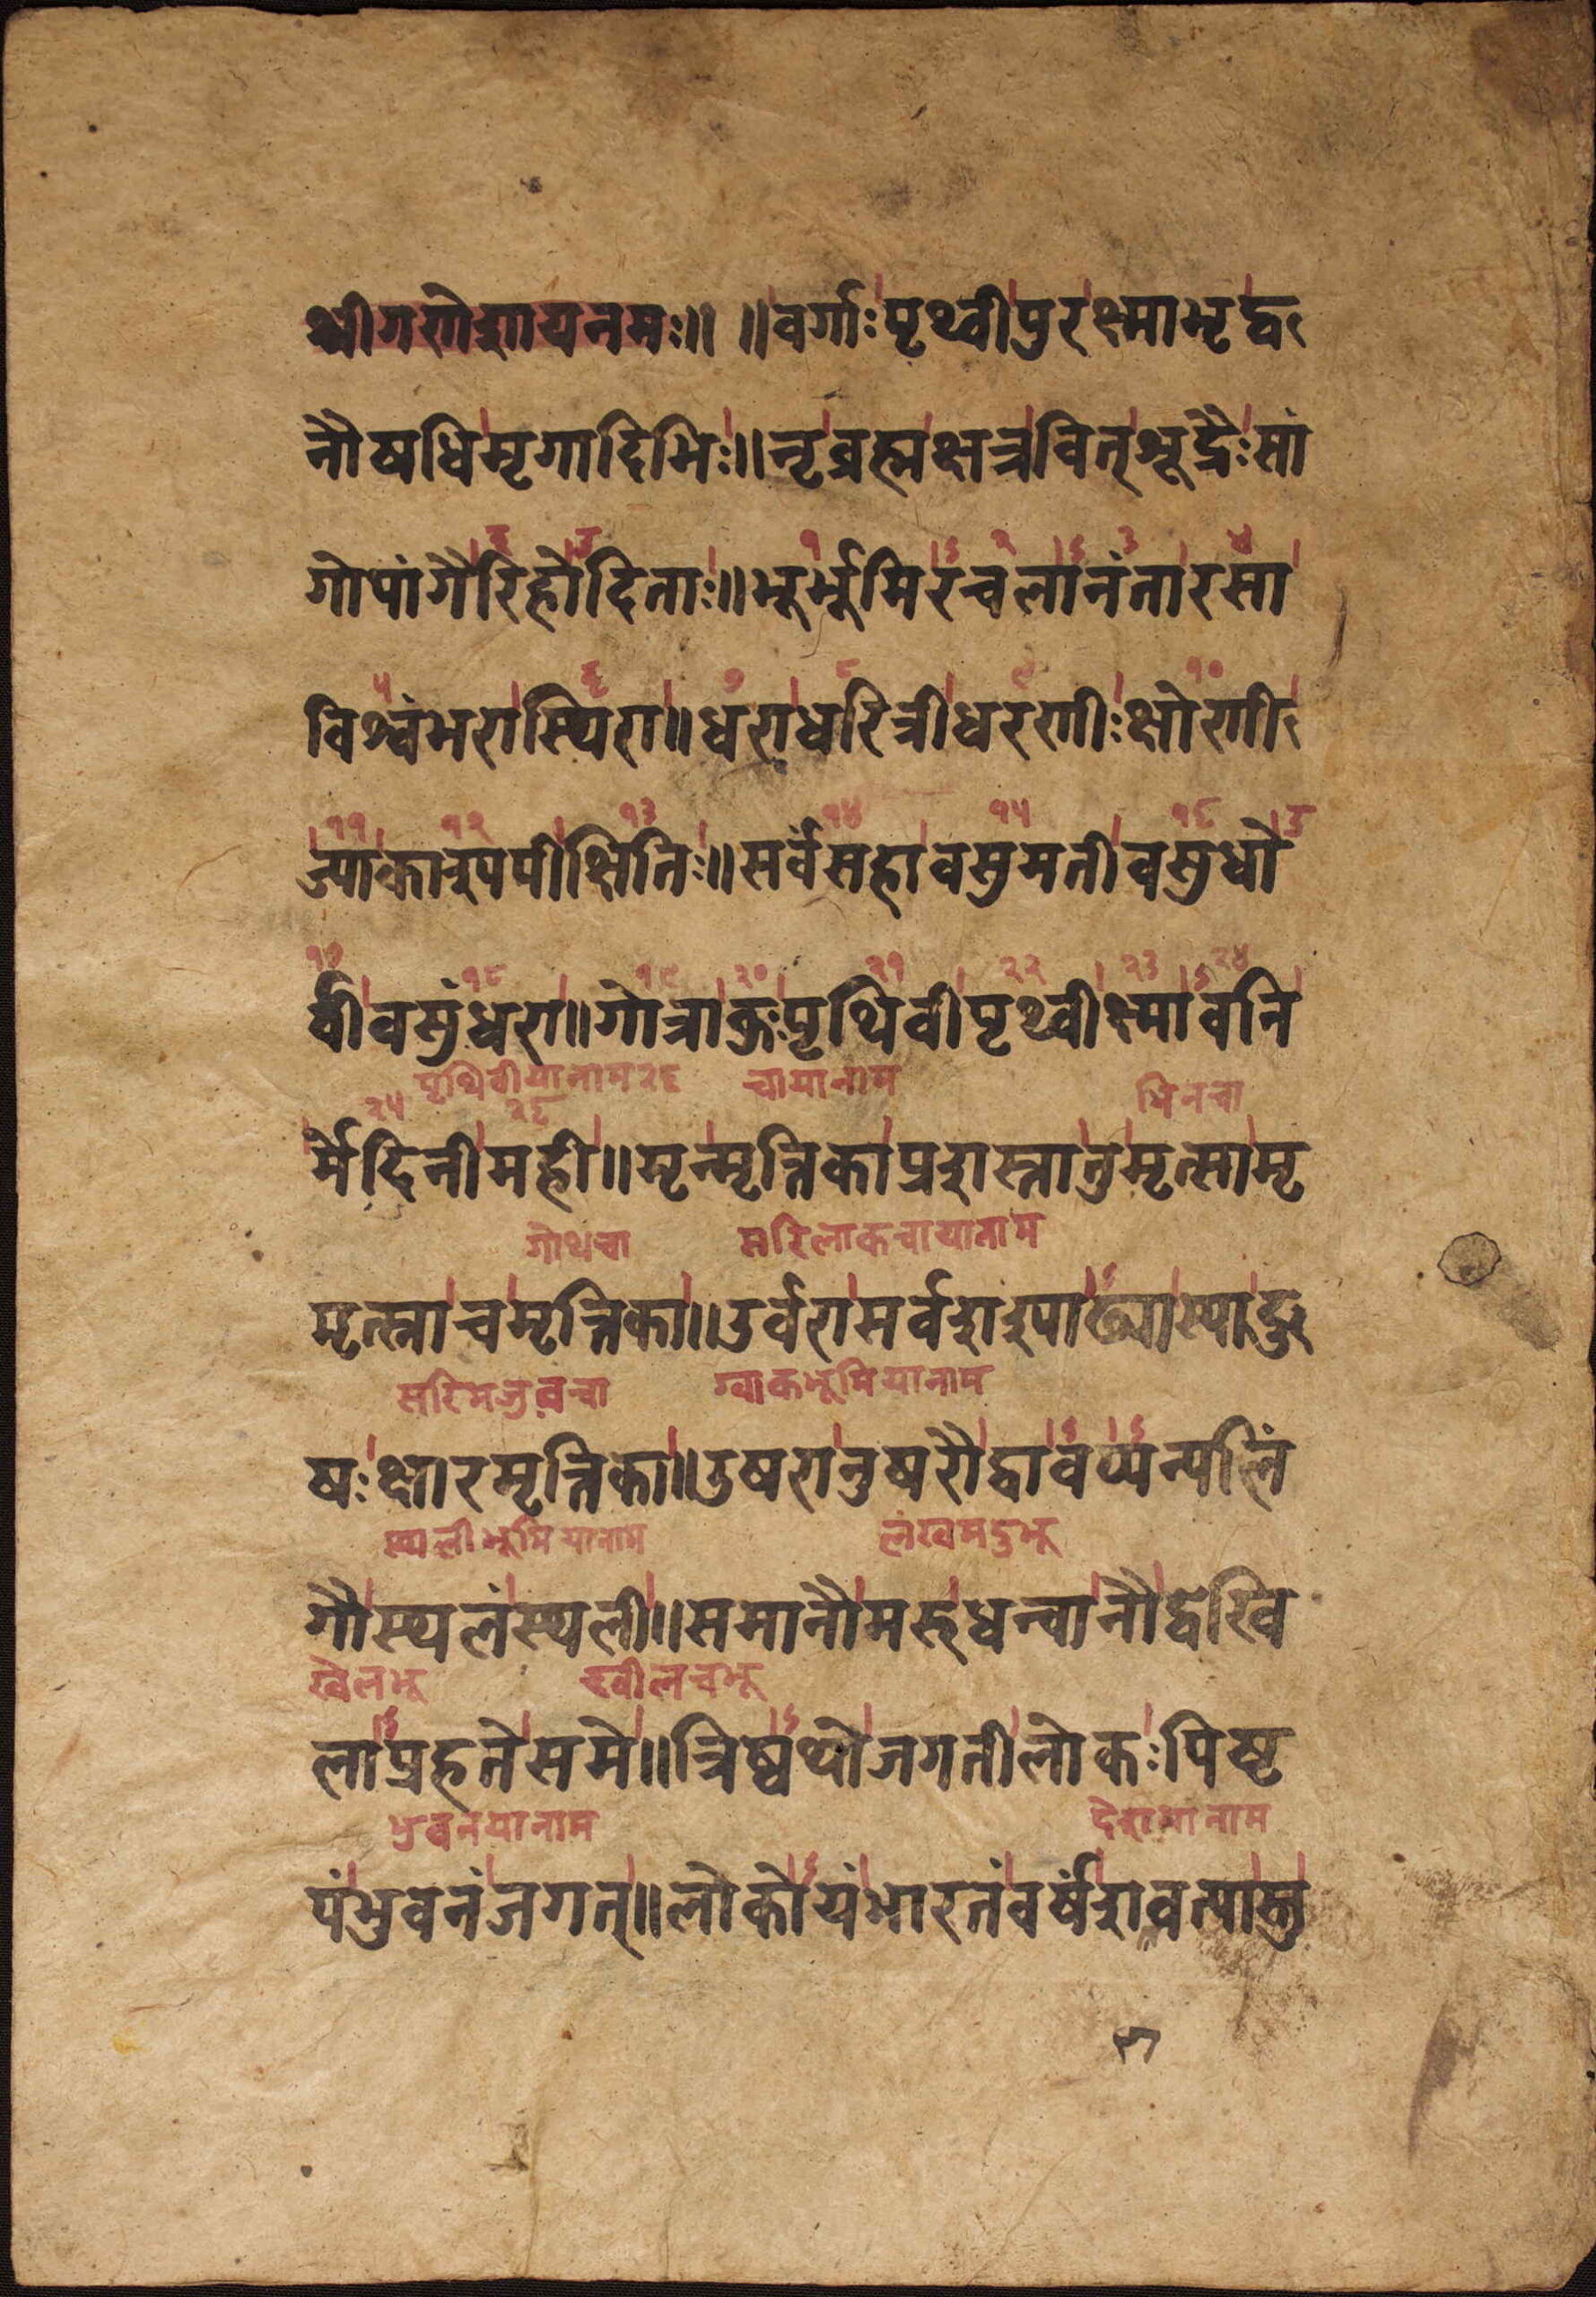 श्रीगणेशायनमः॥ ॥वर्गाःपृथ्वीपुरक्ष्माभृद्व
नौषधिमृगादिभिः॥नृव्रह्मक्षत्रवित्शूद्रैःसां
गोपांगैरिहोदिताः॥भूर्भूमिरचलानंतारसा
१ २ ३ ४
विश्वंभरास्थिरा॥धराधरित्रीधरणीःक्षोणी
५ ६ ७ ८ ९ १०
ज्याकाश्यपीक्षितिः॥सर्वंसहावसुमतीवसुधो
११ १२ १३ १४ १५ १६
र्वीवसुंधरा॥गोत्राकुःपृथिवीपृथ्वीक्ष्मावनि
१७ १८ १९ २० २१ २२ २३ २४
पृथिवीयानाम२६ चायानाम भिनचा
२५ २६
र्मेदिनीमही॥मृन्मृत्तिकाप्रशस्नातुमृत्सामृ
गोथचा सरिलाकचायानाम
मृत्स्नाचमृत्तिका॥उर्वरासर्वशश्पाढ्यास्यादु
ग्वाकभूमियानाम
षःक्षारमृत्तिका॥उषरानुषरौद्वावप्यन्यलिं
स्थलीभूमियानाम लंखमदुभू
गौस्थलंस्थली॥समानौमरुधन्वानौद्वेखि
खेलभू
लाप्रहतेसमे॥त्रिष्वथोजगतीलोकःपिष्ट
भुवनयानाम देशयानाम
पंभुवनंजगत्॥लोकोयंभारतंवर्षंशवत्यास्तु